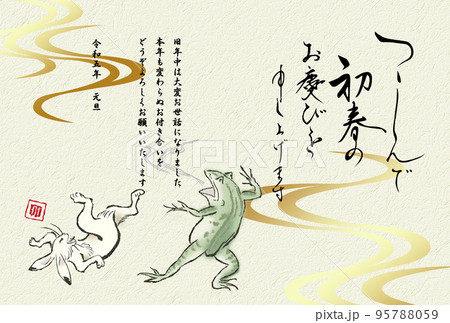 つゝしんで
初春の
お慶びを
申し上げます
旧年中は大変お世話になりました
本年も変わらぬお付き合いを
どうぞよろしくお願いいたします
令和五年 元旦
卯
PIXTA
pixta.jp - 95788059